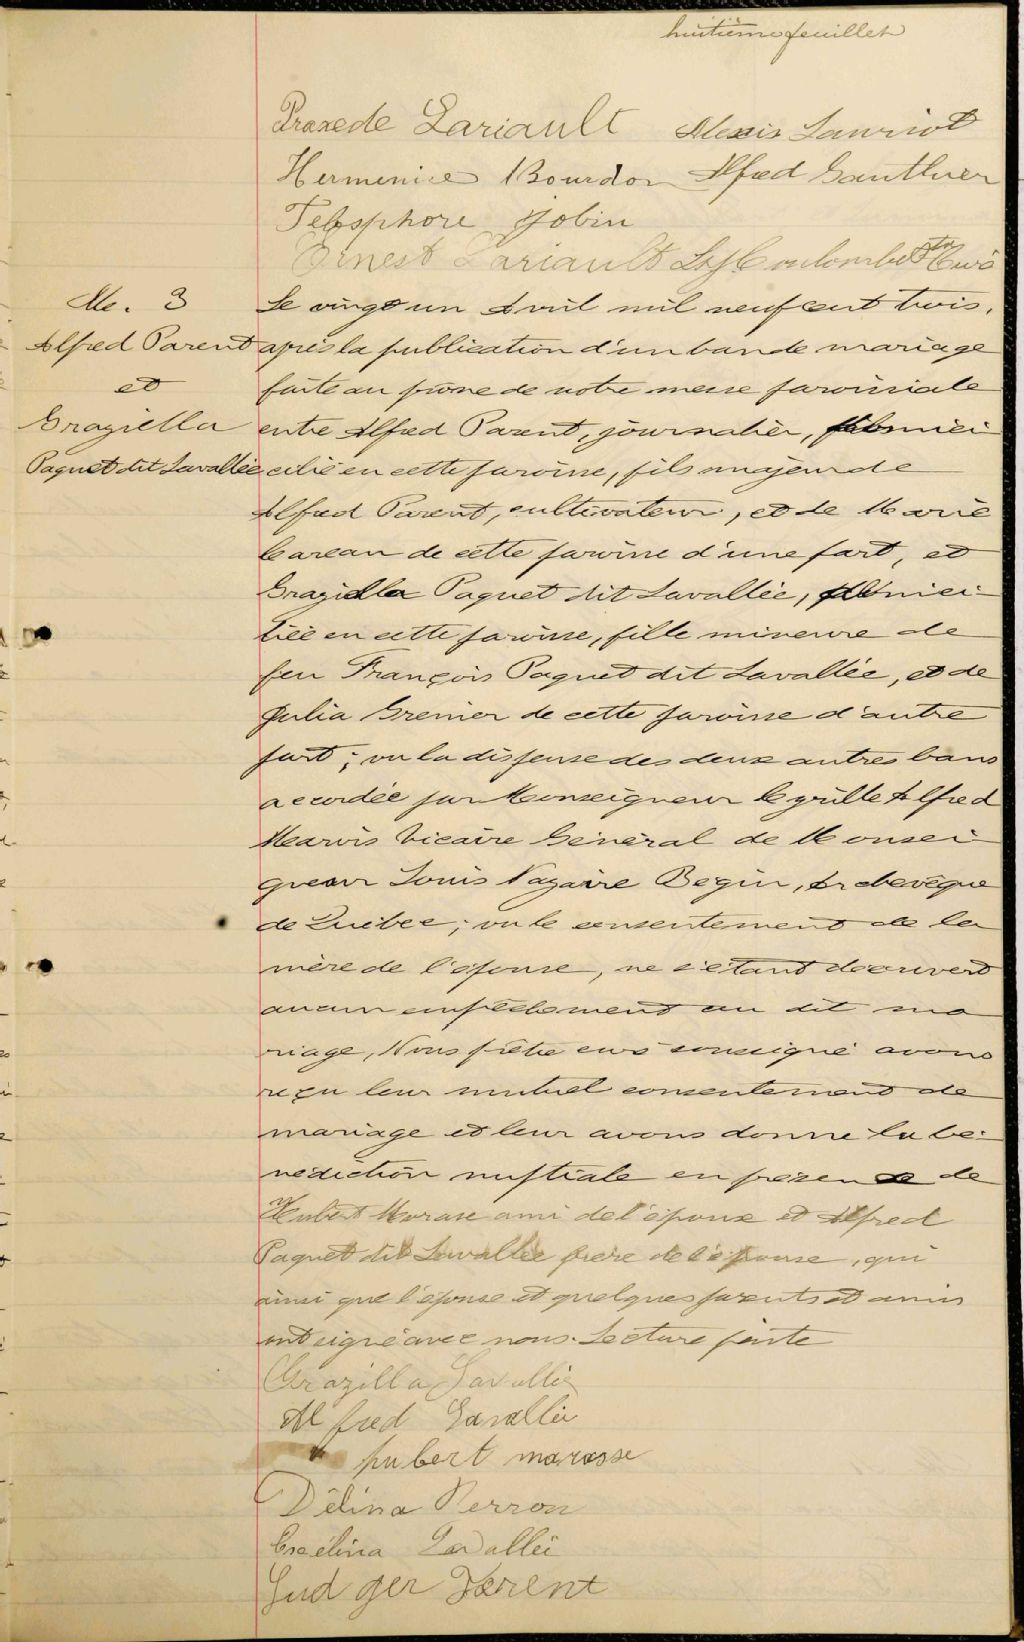 huitième feuillet
Praxede Lariault Alexis Lauriot
Hermenice Bourdon Alfred Gauthier
Telesphore Jobin
Ernest Lariault
M. 3
Alfred Parent
et
Graziella
Paquet dit Lavallée
Le vingt un Avril mil neuf cent trois,
après la publication d'un ban de mariage
faite au prône de notre messe paroissiale
entre Alfred Parent, journalier, domici
cilié en cette paroisse, fils majeur de
Alfred Parent, cultivateur, et de Marie
Careau de cette paroisse d'une part, et
Graziella Paquet dit Lavallée, domici-
liée en cette paroisse, fille mineure de
feu François Paquet dit Lavallée, et de
Julia Grenier de cette paroisse d'autre
part; vu la dispense des deux autres bans
accordée par Monseigneur Cyrille Alfred
Marois Vicaire Général de Monsei-
gneur Louis Nazaire Begin, Archevêque
de Québec; vu le consentement de la
mère de l'épouse, ne s'étant découvert
aucun empêchement au dit ma
riage, Nous prêtre curé soussigné avons
reçu leur mutuel consentement de
mariage et leur avons donné la bé-
nédiction nuptiale en présence de
Hubert Marase ami de l'époux et Alfred
Paquet dit Lavallée frère de l'épouse, qui
ainsi que l'épouse et quelques parents et amis
ont signé avec nous. Lecture faite
Grazilla Lavallée
Alfred Lavallée
hubert marasse
Délina Perron
Exélina Lavallée
Gudger Parent